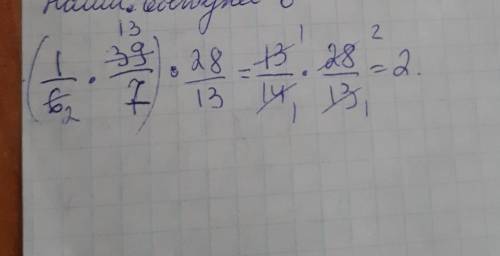 (1/6₂ · 39¹³/7) · 28/13 = 13¹/14₁ · 28²/13₁ = 2.